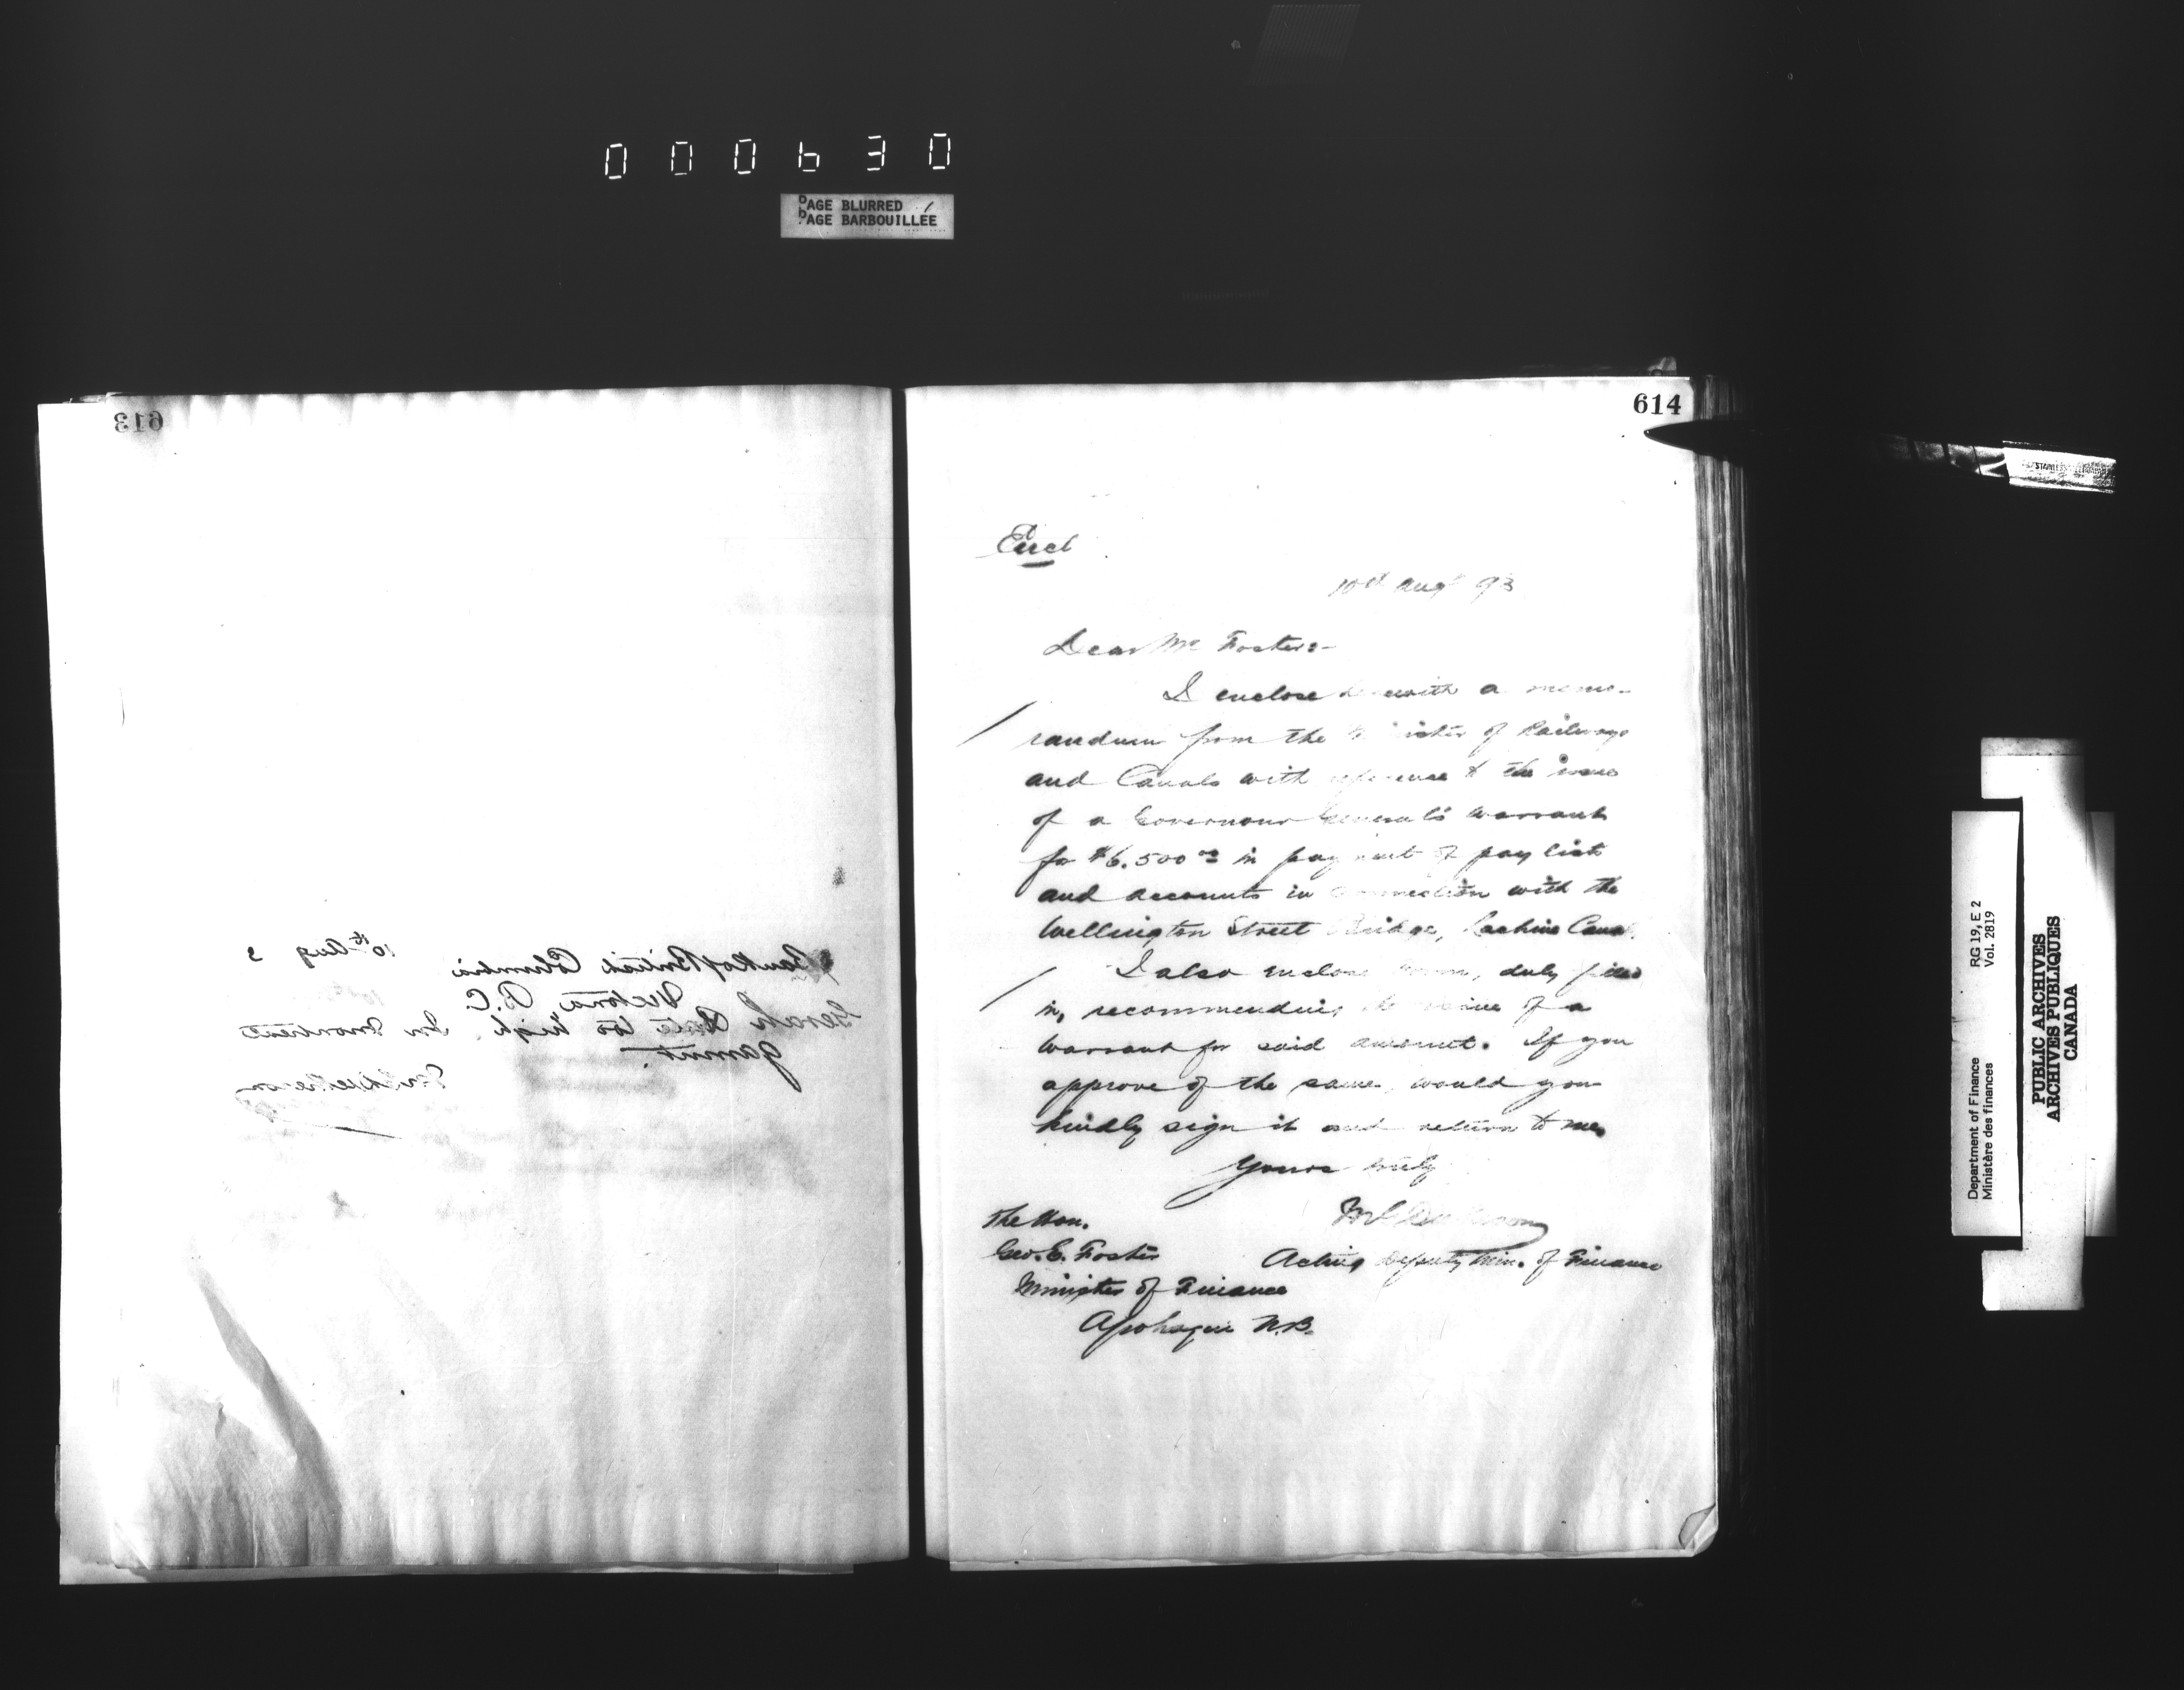 000630
PAGE BLURRED
PAGE BARBOUILLÉE
613
10th Aug 3
Bank of British Columbia
Victoria B.C.
Rate too high. In Montreal
614
Encl
10th Augt 93
Dear Mr Foster:-
I enclose herewith a memo-
randum from the Minister of Railways
and Canals with reference to the issue
of a Governour General's warrant
for $6,500.00 in payment of pay list
and accounts in connection with the
Wellington Street Bridge, Lachine Canal.
I also enclose form, duly filled
in, recommending the issue of a
warrant for said amount. If you
approve of the same, would you
kindly sign it and return to me.
Yours truly
The Hon.
Geo. E. Foster
Acting Deputy Min. of Finance
Minister of Finance
Apohaqui N.B.
STAINLESS
Department of Finance RG 19, E 2
Ministère des finances Vol. 2819
PUBLIC ARCHIVES
ARCHIVES PUBLIQUES
CANADA